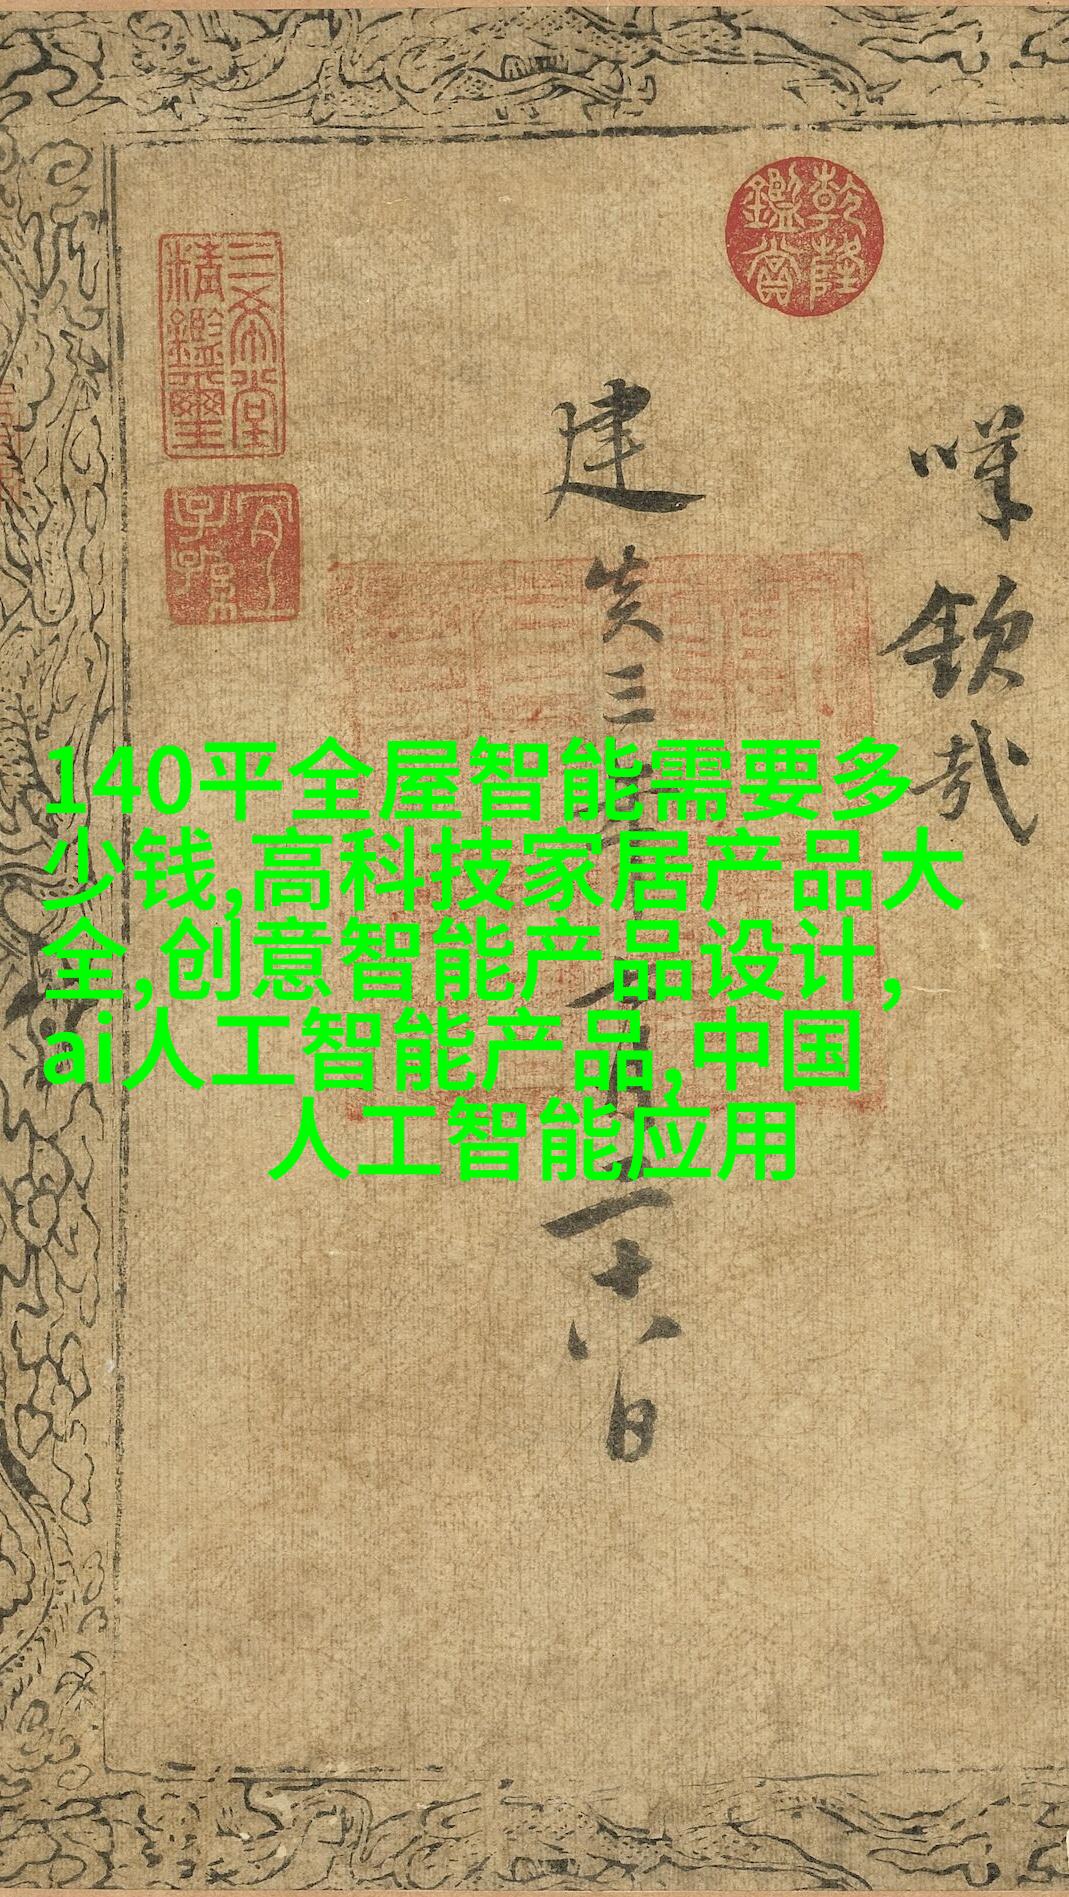 140平全屋智能需要多
少钱,高科技家居产品大
全,创意智能产品设计,
ai人工智能产品,中国
人工智能应用
乾隆鑑賞
三希堂精鑑璽
宜子孫
嘆欽哉
建炎三年
月二十八日